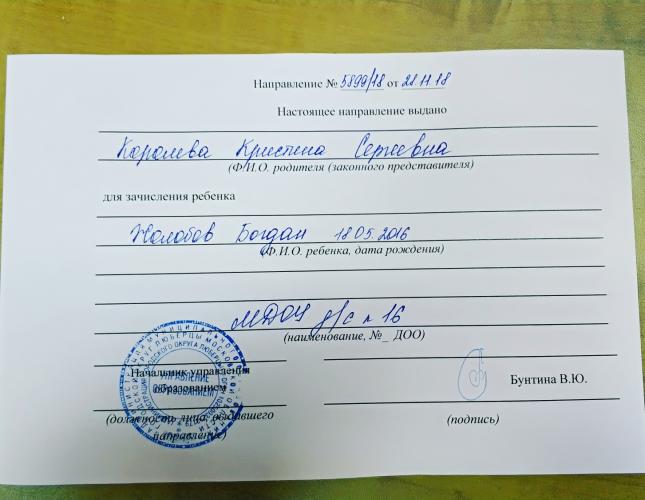 Направление № 5899/18 от 28.11.18
Настоящее направление выдано
Королева Кристина Сергеевна
(Ф.И.О. родителя (законного представителя)
для зачисления ребенка
Жолобов Богдан 18.05.2016
(Ф.И.О. ребенка, дата рождения)
МДОУ д/с № 16
(наименование, №_ ДОО)
Начальник управления
образованием
Бунтина В.Ю.
(должность лица, выдавшего
направление)
(подпись)
УПРАВЛЕНИЕ
ОБРАЗОВАНИЕМ